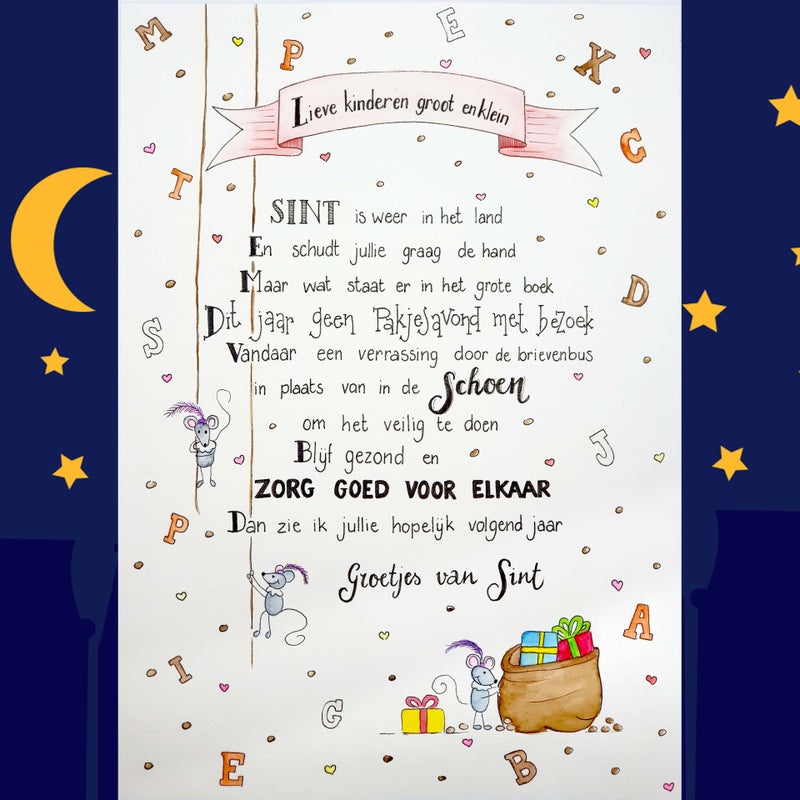 M
P
E
X
Lieve kinderen groot en klein
C
T
SINT is weer in het land
En schudt jullie graag de hand
Maar wat staat er in het grote boek
D
Dit jaar geen Pakjesavond met bezoek
S
Vandaar een verrassing door de brievenbus
in plaats van in de Schoen
om het veilig te doen
J
Blijf gezond en
ZORG GOED VOOR ELKAAR
P
Dan zie ik jullie hopelijk volgend jaar
Groetjes van Sint
A
I
G
E
B